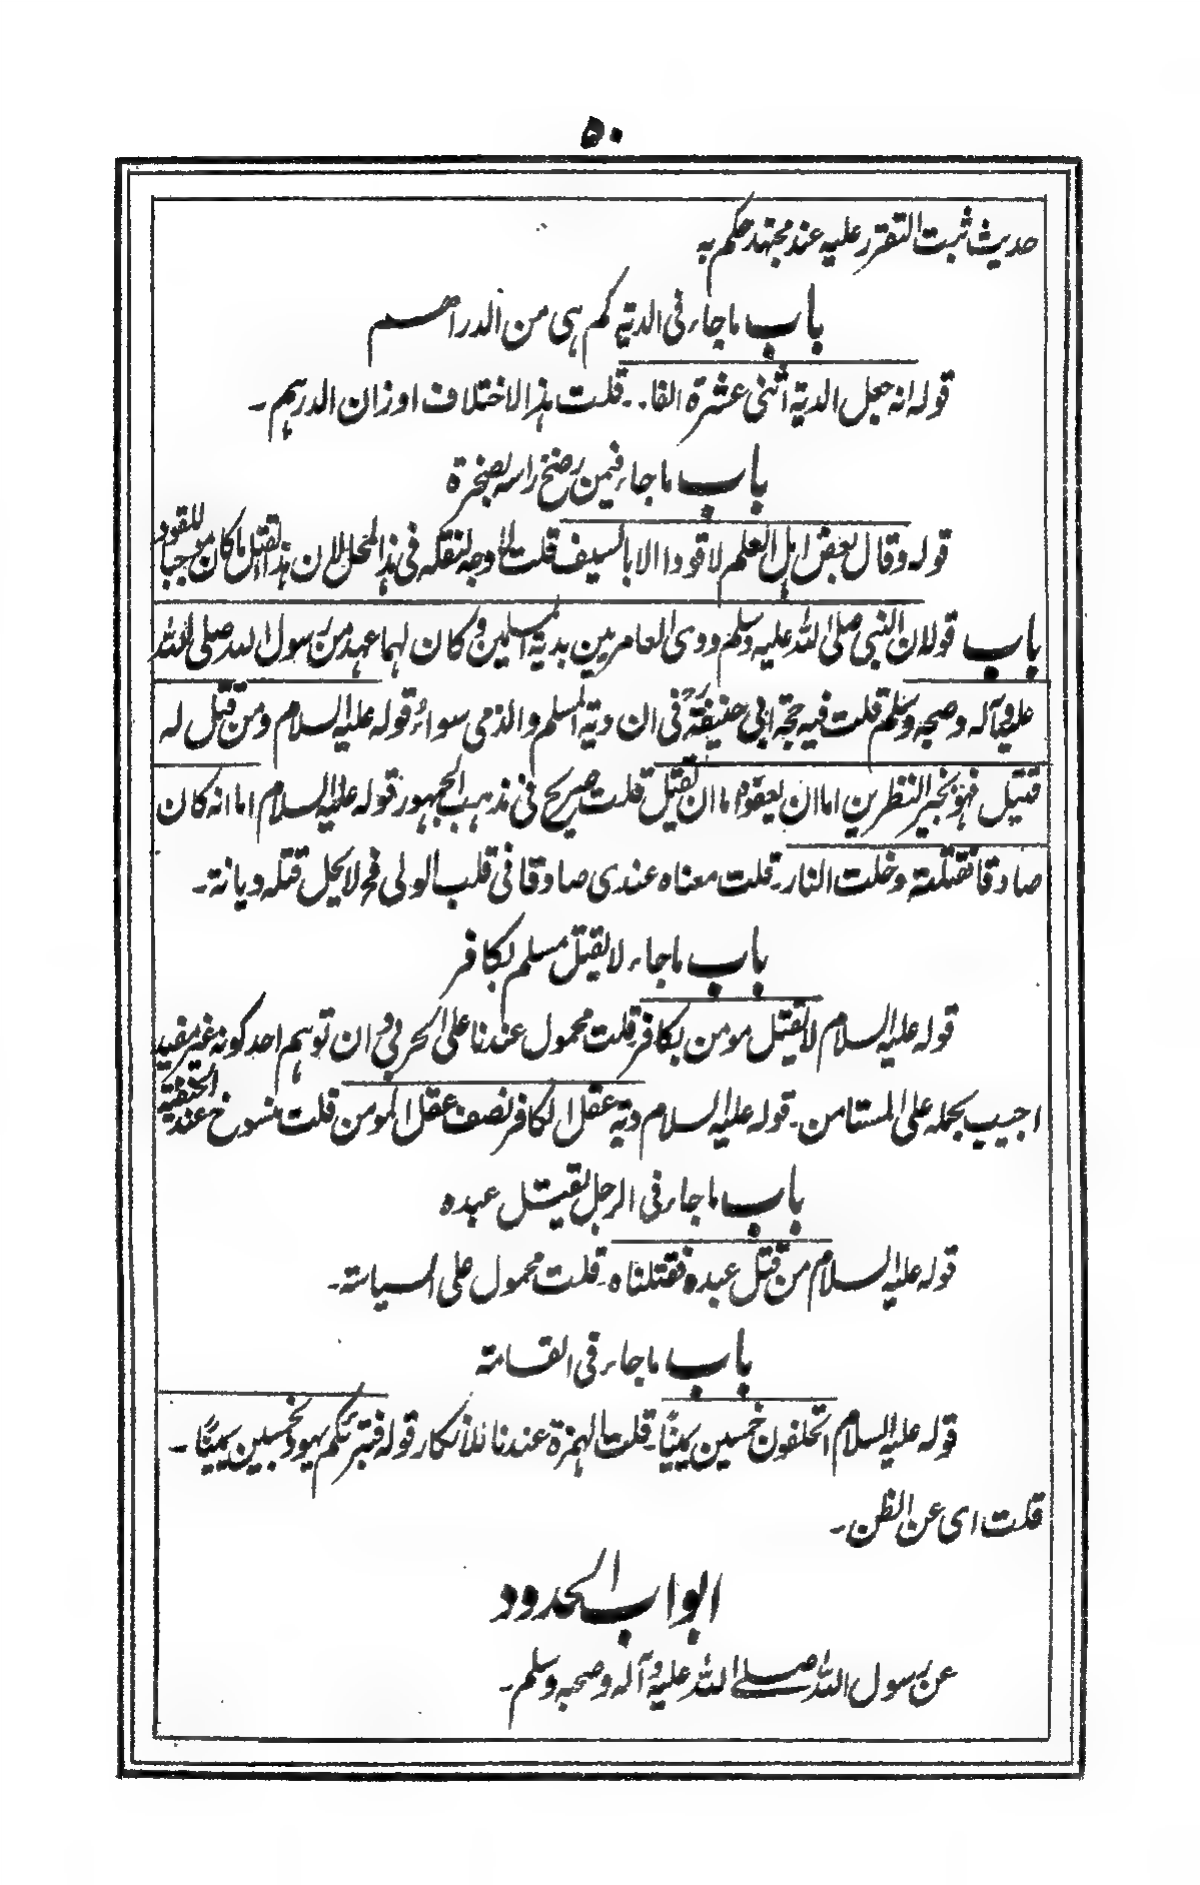 ۵۰
حدیث ثبت التقرر علیه عند مجتهد حکم به
باب ما جاء فی الدیة کم هی من الدراهم
قوله انه جعل الدیة اثنی عشرة الفا۔ قلت هذا الاختلاف اوزان الدرهم۔
باب ما جاء فیمن رضخ راسه بصخرة
قوله وقال بعض اهل العلم لا قود الا بالسیف قلت لا وجه لنقله فی هذا المحل لان هذا القتل ما کان موجبا للقود
باب قوله ان النبی صلی الله علیه وسلم ودی العامریین بدیة المسلمین وکان لهما عهد من رسول الله صلی الله
علیه وآله وصحبه وسلم قلت فیه حجة ابی حنیفةؒ فی ان دیة المسلم والذمی سواء قوله علیه السلام ومن قتل له
قتیل فهو بخیر النظرین اما ان یعفو واما ان یقتل قلت صریح فی مذهب الجمهور قوله علیه السلام اما انه کان
صادقا فقتلته دخلت النار۔ قلت معناه عندی صادقا فی قلب الولی فح لا یحل قتله دیانة۔
باب ما جاء لا یقتل مسلم بکافر
قوله علیه السلام لا یقتل مومن بکافر قلت محمول عندنا علی الحربی وان توهم احد کونه غیر مفید
اجیب بحمله علی المستامن۔ قوله علیه السلام دیة عقل الکافر نصف عقل المومن قلت منسوخ عند الحنفیة
باب ما جاء فی الرجل یقتل عبده
قوله علیه السلام من قتل عبده فقتلناه۔ قلت محمول علی السیاسة۔
باب ما جاء فی القسامة
قوله علیه السلام اتحلفون خمسین یمینًا۔ قلت الهمزة عندنا للانکار قوله فتبرئکم یهود بخمسین یمینًا۔
قلت ای عن الظن۔
ابواب الحدود
عن رسول الله صلی الله علیه وآله وصحبه وسلم۔